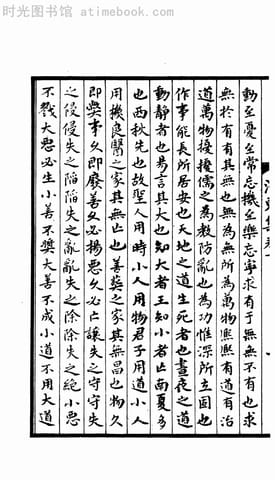 时光图书馆 — atimebook.com
動至憂至常忘機至樂忘寧求有于無無不有也求
無於有有其無也無為無所為萬物熙熙有道有治
道萬物擾擾儒之為教防亂也為功惟深所立固也
作事能長所居安也天地之道生死者也晝夜之道
動靜者也易言其大也知大者王知小者亡西夏多
也西秋先也故聖人用時小人用物君子用道小人
用機良醫之家其無也善藝之家其無昌也物久
即獎事久即廢善久必揚惡久必亡讓失之守守失
之侵侵失之陷陷失之亂亂失之除除失之絕小惡
不戮大惡必生小善不獎大善不成小道不用大道